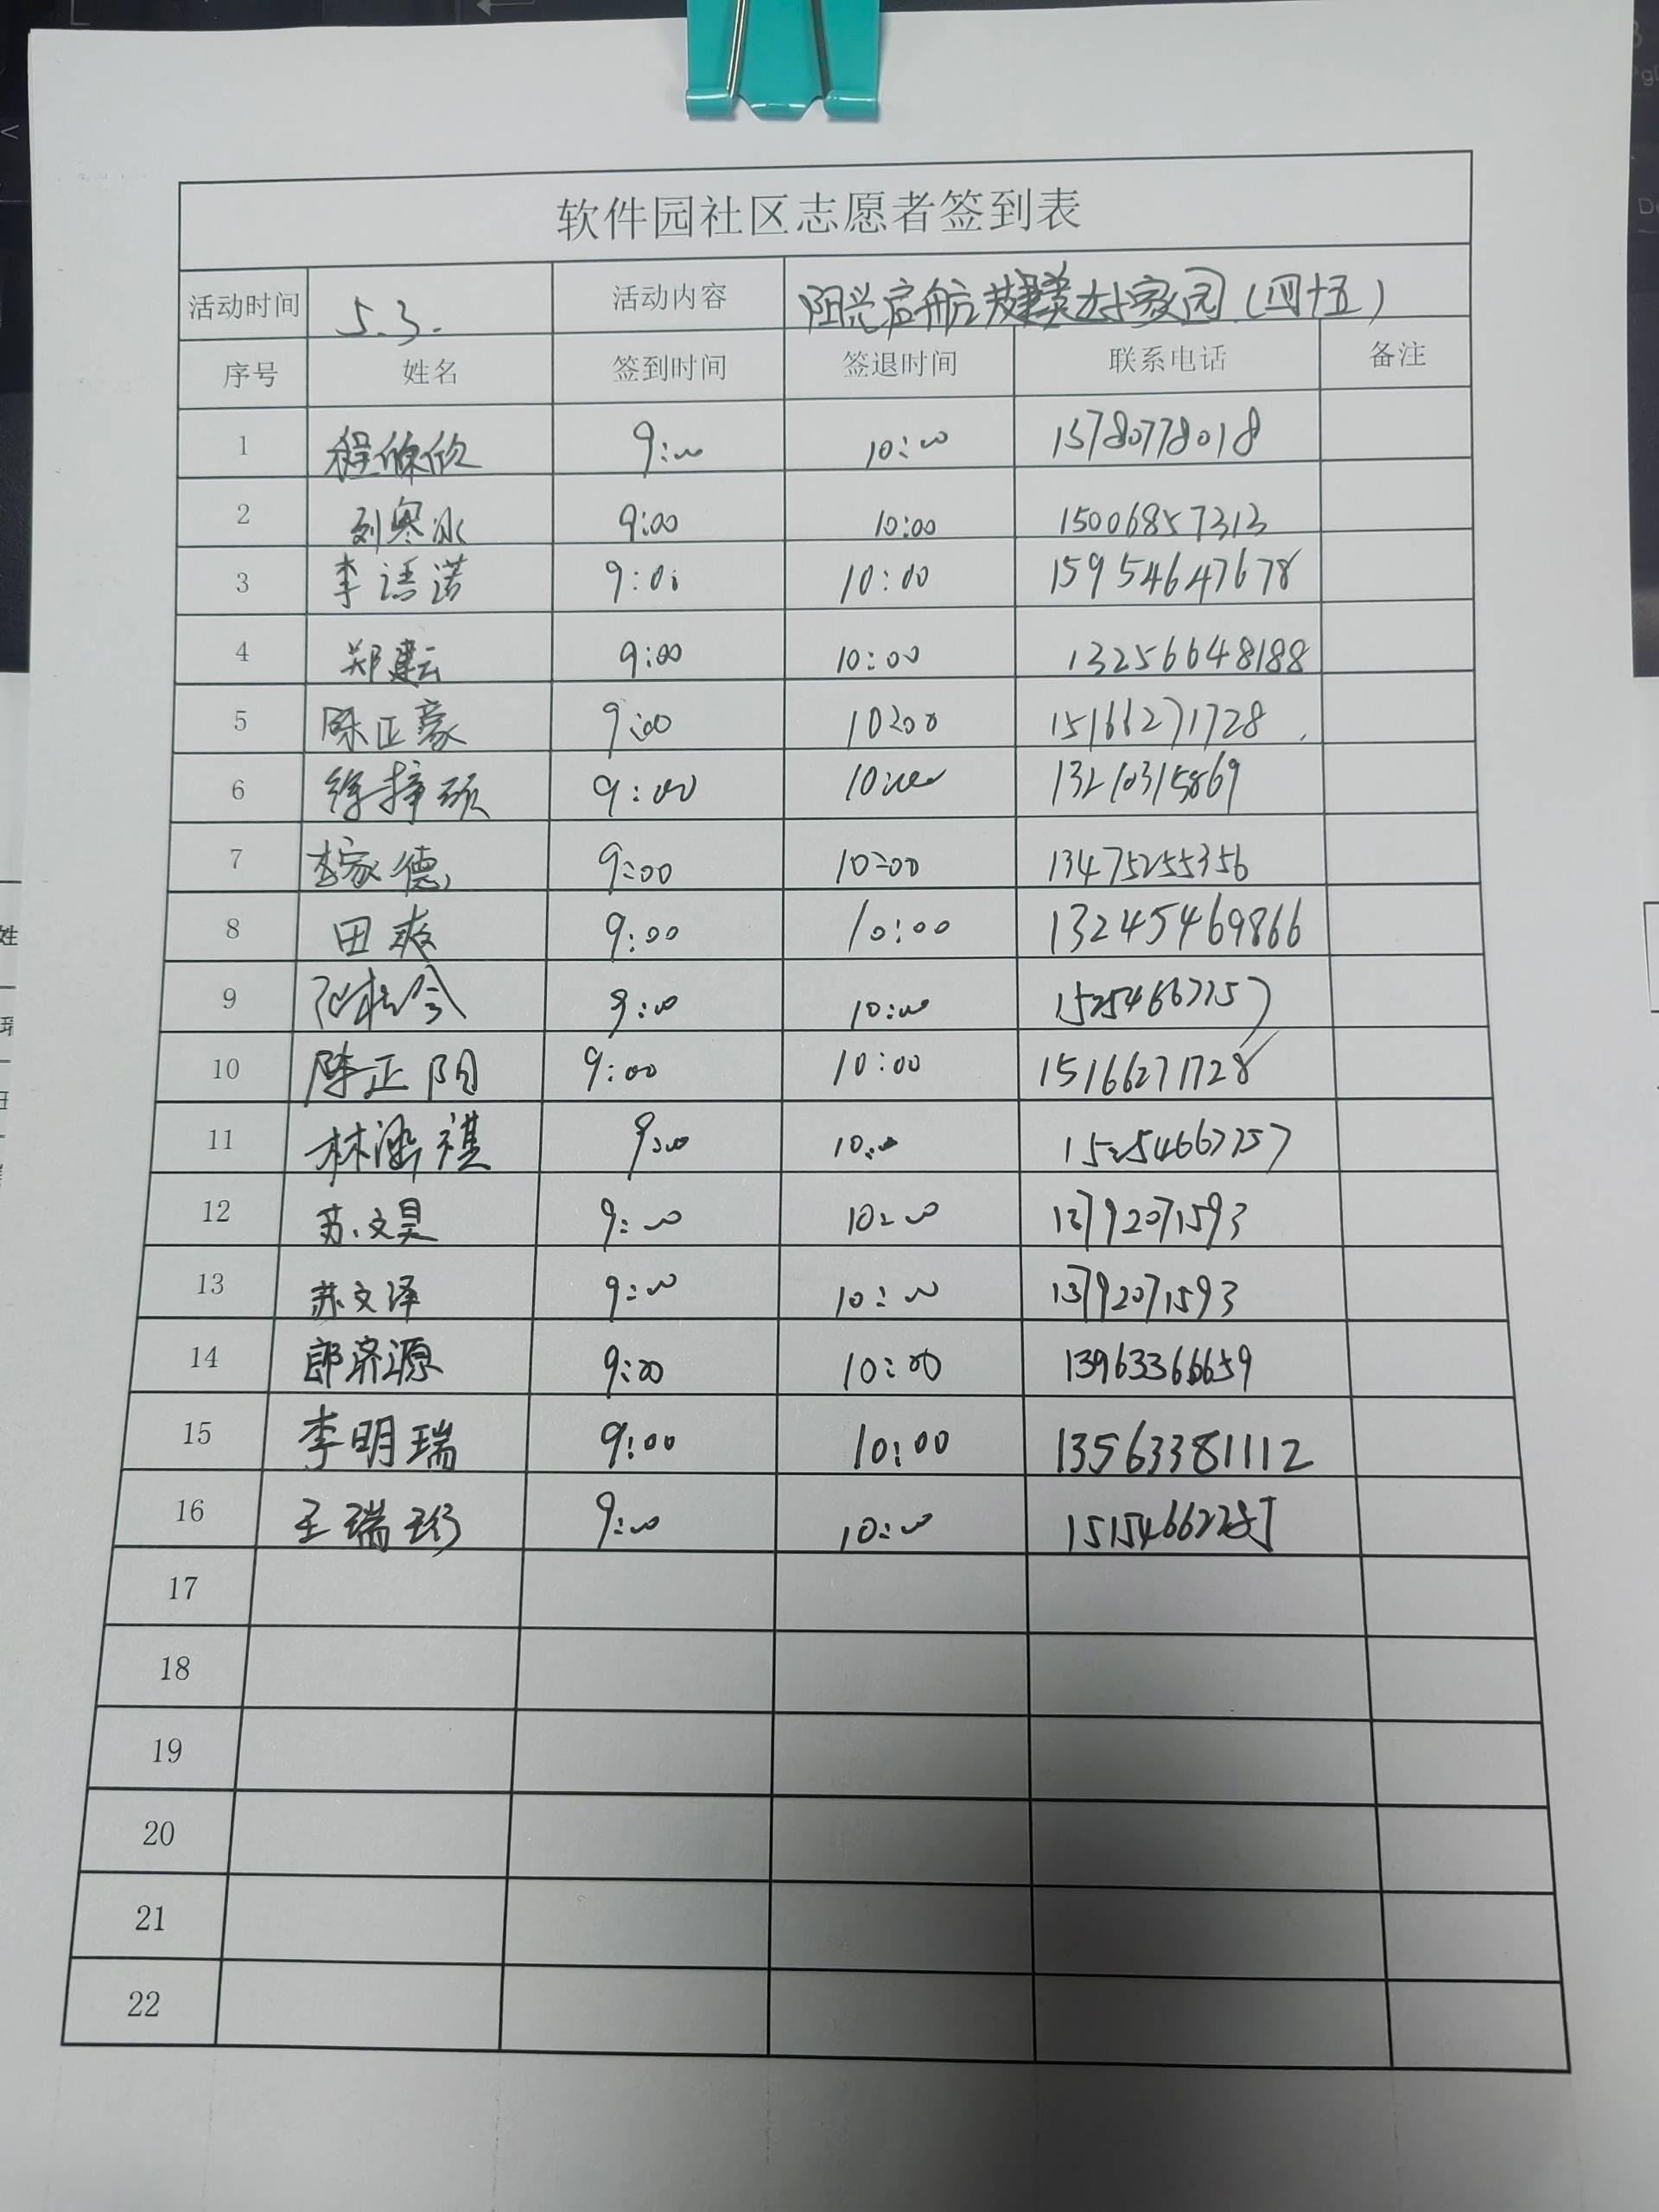 软件园社区志愿者签到表
活动时间 5.3. 活动内容 阳光启航 共建美好家园（四十五）
序号 姓名 签到时间 签退时间 联系电话 备注
1 程 欣 9:00 10:00 15780778018
2 刘寒冰 9:00 10:00 15006857313
3 李语诺 9:00 10:00 15954647678
4 郑云 9:00 10:00 13256648188
5 陈正豪 9:00 10:00 15166271728
6 徐梓硕 9:00 10:00 13210315869
7 李家德 9:00 10:00 13475255356
8 田爽 9:00 10:00 13245469866
9 9:00 10:00 15254667757
10 陈正阳 9:00 10:00 15166271728
11 林涵祺 9:00 10:00 15254667757
12 苏文昊 9:00 10:00 13792071593
13 苏文泽 9:00 10:00 13792071593
14 郎济源 9:00 10:00 13963366659
15 李明瑞 9:00 10:00 13563381112
16 王瑞珩 9:00 10:00
17
18
19
20
21
22